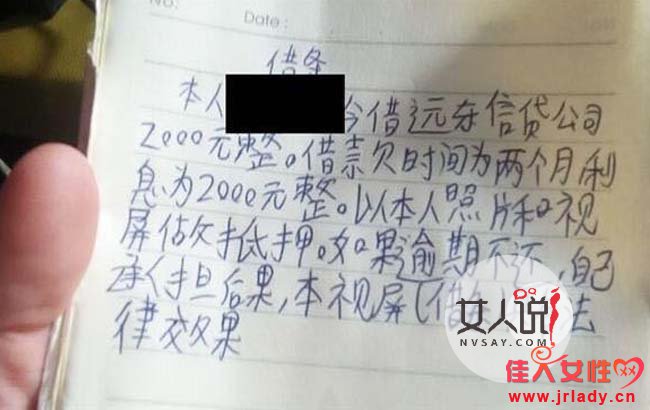 No:
Date:
借条
本人 今借远东信贷公司
2000元整。借款时间为两个月利
息为2000元整。以本人照片和视
屏做抵押。如果逾期不还,自己
承担后果,本视屏(借 法
律效果
女人说
NVSAY.COM
佳人女性网
www.jrlady.cn